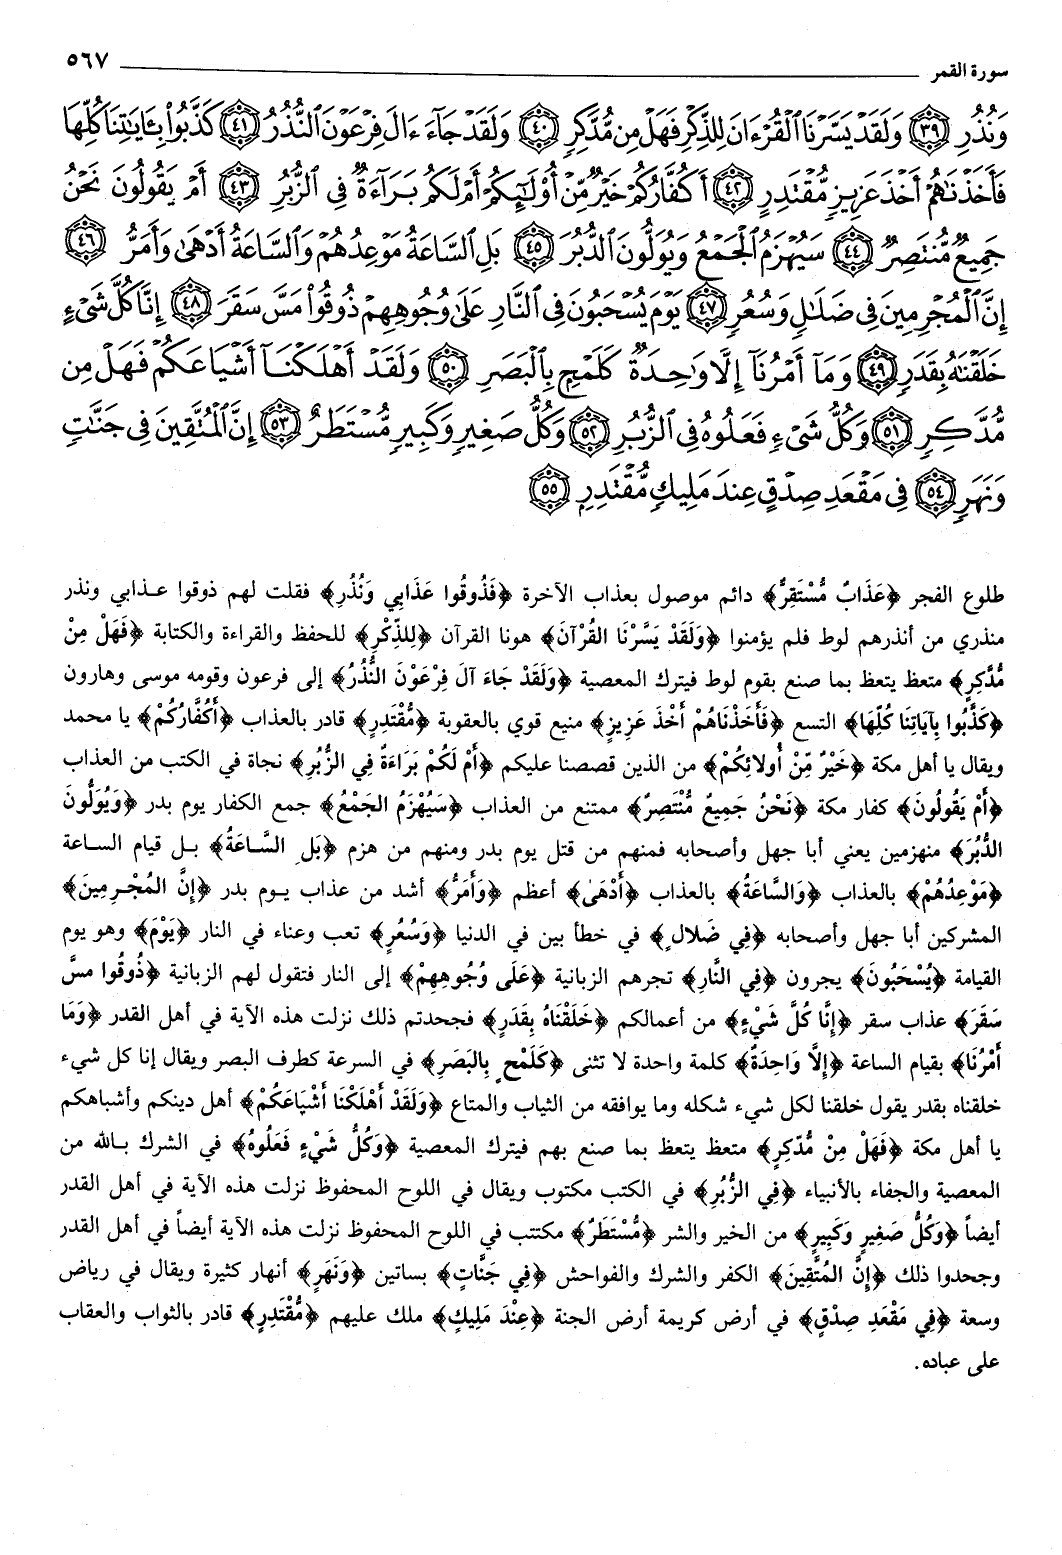 سورة القمر ٥٦٧
وَنُذُرِ ٣٩ وَلَقَدْ يَسَّرْنَا ٱلْقُرْءَانَ لِلذِّكْرِ فَهَلْ مِن مُّدَّكِرٍ ٤٠ وَلَقَدْ جَآءَ ءَالَ فِرْعَوْنَ ٱلنُّذُرُ ٤١ كَذَّبُوا۟ بِـَٔايَٰتِنَا كُلِّهَا
فَأَخَذْنَٰهُمْ أَخْذَ عَزِيزٍ مُّقْتَدِرٍ ٤٢ أَكُفَّارُكُمْ خَيْرٌ مِّنْ أُو۟لَٰٓئِكُمْ أَمْ لَكُم بَرَآءَةٌ فِى ٱلزُّبُرِ ٤٣ أَمْ يَقُولُونَ نَحْنُ
جَمِيعٌ مُّنتَصِرٌ ٤٤ سَيُهْزَمُ ٱلْجَمْعُ وَيُوَلُّونَ ٱلدُّبُرَ ٤٥ بَلِ ٱلسَّاعَةُ مَوْعِدُهُمْ وَٱلسَّاعَةُ أَدْهَىٰ وَأَمَرُّ ٤٦
إِنَّ ٱلْمُجْرِمِينَ فِى ضَلَٰلٍ وَسُعُرٍ ٤٧ يَوْمَ يُسْحَبُونَ فِى ٱلنَّارِ عَلَىٰ وُجُوهِهِمْ ذُوقُوا۟ مَسَّ سَقَرَ ٤٨ إِنَّا كُلَّ شَىْءٍ
خَلَقْنَٰهُ بِقَدَرٍ ٤٩ وَمَآ أَمْرُنَآ إِلَّا وَٰحِدَةٌ كَلَمْحٍ بِٱلْبَصَرِ ٥٠ وَلَقَدْ أَهْلَكْنَآ أَشْيَاعَكُمْ فَهَلْ مِن
مُّدَّكِرٍ ٥١ وَكُلُّ شَىْءٍ فَعَلُوهُ فِى ٱلزُّبُرِ ٥٢ وَكُلُّ صَغِيرٍ وَكَبِيرٍ مُّسْتَطَرٌ ٥٣ إِنَّ ٱلْمُتَّقِينَ فِى جَنَّٰتٍ
وَنَهَرٍ ٥٤ فِى مَقْعَدِ صِدْقٍ عِندَ مَلِيكٍ مُّقْتَدِرٍ ٥٥
طلوع الفجر ﴿عَذَابٌ مُّسْتَقِرٌّ﴾ دائم موصول بعذاب الآخرة ﴿فَذُوقُوا عَذَابِي وَنُذُرِ﴾ فقلت لهم ذوقوا عذابي ونذر
منذري من أنذرهم لوط فلم يؤمنوا ﴿وَلَقَدْ يَسَّرْنَا القُرْآنَ﴾ هونا القرآن ﴿لِلذِّكْرِ﴾ للحفظ والقراءة والكتابة ﴿فَهَلْ مِنْ
مُّدَّكِرٍ﴾ متعظ يتعظ بما صنع بقوم لوط فيترك المعصية ﴿وَلَقَدْ جَاءَ آلَ فِرْعَوْنَ النُّذُرُ﴾ إلى فرعون وقومه موسى وهارون
﴿كَذَّبُوا بِآيَاتِنَا كُلِّهَا﴾ التسع ﴿فَأَخَذْنَاهُمْ أَخْذَ عَزِيزٍ﴾ منيع قوي بالعقوبة ﴿مُّقْتَدِرٍ﴾ قادر بالعذاب ﴿أَكُفَّارُكُمْ﴾ يا محمد
ويقال يا أهل مكة ﴿خَيْرٌ مِّنْ أُولائِكُمْ﴾ من الذين قصصنا عليكم ﴿أَمْ لَكُمْ بَرَاءَةٌ فِي الزُّبُرِ﴾ نجاة في الكتب من العذاب
﴿أَمْ يَقُولُونَ﴾ كفار مكة ﴿نَحْنُ جَمِيعٌ مُنْتَصِرٌ﴾ ممتنع من العذاب ﴿سَيُهْزَمُ الجَمْعُ﴾ جمع الكفار يوم بدر ﴿وَيُوَلُّونَ
الدُّبُرَ﴾ منهزمين يعني أبا جهل وأصحابه فمنهم من قتل يوم بدر ومنهم من هزم ﴿بَلِ السَّاعَةُ﴾ بل قيام الساعة
﴿مَوْعِدُهُمْ﴾ بالعذاب ﴿وَالسَّاعَةُ﴾ بالعذاب ﴿أَدْهَىٰ﴾ أعظم ﴿وَأَمَرُّ﴾ أشد من عذاب يوم بدر ﴿إِنَّ المُجْرِمِينَ﴾
المشركين أبا جهل وأصحابه ﴿فِي ضَلالٍ﴾ في خطأ بين في الدنيا ﴿وَسُعُرٍ﴾ تعب وعناء في النار ﴿يَوْمَ﴾ وهو يوم
القيامة ﴿يُسْحَبُونَ﴾ يجرون ﴿فِي النَّارِ﴾ تجرهم الزبانية ﴿عَلَى وُجُوهِهِمْ﴾ إلى النار فتقول لهم الزبانية ﴿ذُوقُوا مسَّ
سَقَرَ﴾ عذاب سقر ﴿إِنَّا كُلَّ شَيْءٍ﴾ من أعمالكم ﴿خَلَقْنَاهُ بِقَدَرٍ﴾ فجحدتم ذلك نزلت هذه الآية في أهل القدر ﴿وَمَا
أَمْرُنَا﴾ بقيام الساعة ﴿إِلَّا وَاحِدَةٌ﴾ كلمة واحدة لا تثنى ﴿كَلَمْحٍ بِالبَصَرِ﴾ في السرعة كطرف البصر ويقال إنا كل شيء
خلقناه بقدر يقول خلقنا لكل شيء شكله وما يوافقه من الثياب والمتاع ﴿وَلَقَدْ أَهْلَكْنَا أَشْيَاعَكُمْ﴾ أهل دينكم وأشباهكم
يا أهل مكة ﴿فَهَلْ مِنْ مُّدَّكِرٍ﴾ متعظ يتعظ بما صنع بهم فيترك المعصية ﴿وَكُلُّ شَيْءٍ فَعَلُوهُ﴾ في الشرك بالله من
المعصية والجفاء بالأنبياء ﴿فِي الزُّبُرِ﴾ في الكتب مكتوب ويقال في اللوح المحفوظ نزلت هذه الآية في أهل القدر
أيضاً ﴿وَكُلُّ صَغِيرٍ وَكَبِيرٍ﴾ من الخير والشر ﴿مُّسْتَطَرٌ﴾ مكتتب في اللوح المحفوظ نزلت هذه الآية أيضاً في أهل القدر
وجحدوا ذلك ﴿إِنَّ المُتَّقِينَ﴾ الكفر والشرك والفواحش ﴿فِي جَنَّاتٍ﴾ بساتين ﴿وَنَهَرٍ﴾ أنهار كثيرة ويقال في رياض
وسعة ﴿فِي مَقْعَدِ صِدْقٍ﴾ في أرض كريمة أرض الجنة ﴿عِنْدَ مَلِيكٍ﴾ ملك عليهم ﴿مُّقْتَدِرٍ﴾ قادر بالثواب والعقاب
على عباده.